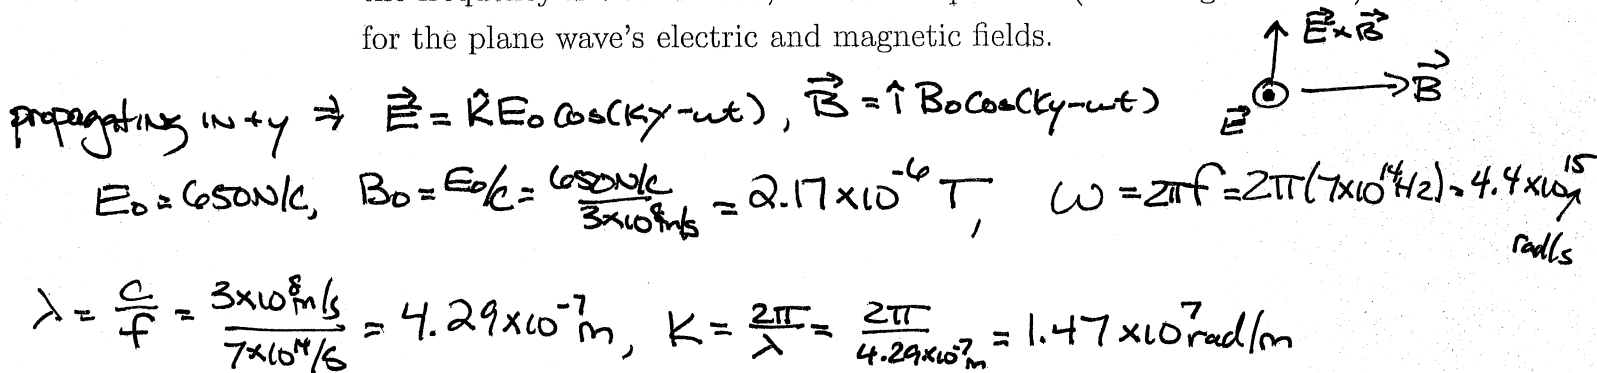 for the plane wave's electric and magnetic fields.
E⃗×B⃗
propagating in +y ⇒ E⃗ = k̂ E₀ cos(ky-ωt), B⃗ = î B₀ cos(ky-ωt)
E⃗ B⃗
E₀ = 650N/C, B₀ = E₀/c = 650N/C / 3×10⁸m/s = 2.17×10⁻⁶ T, ω = 2πf = 2π(7×10¹⁴Hz) = 4.4×10¹⁵ rad/s
λ = c/f = 3×10⁸m/s / 7×10¹⁴/s = 4.29×10⁻⁷m, K = 2π/λ = 2π / 4.29×10⁻⁷m = 1.47×10⁷rad/m